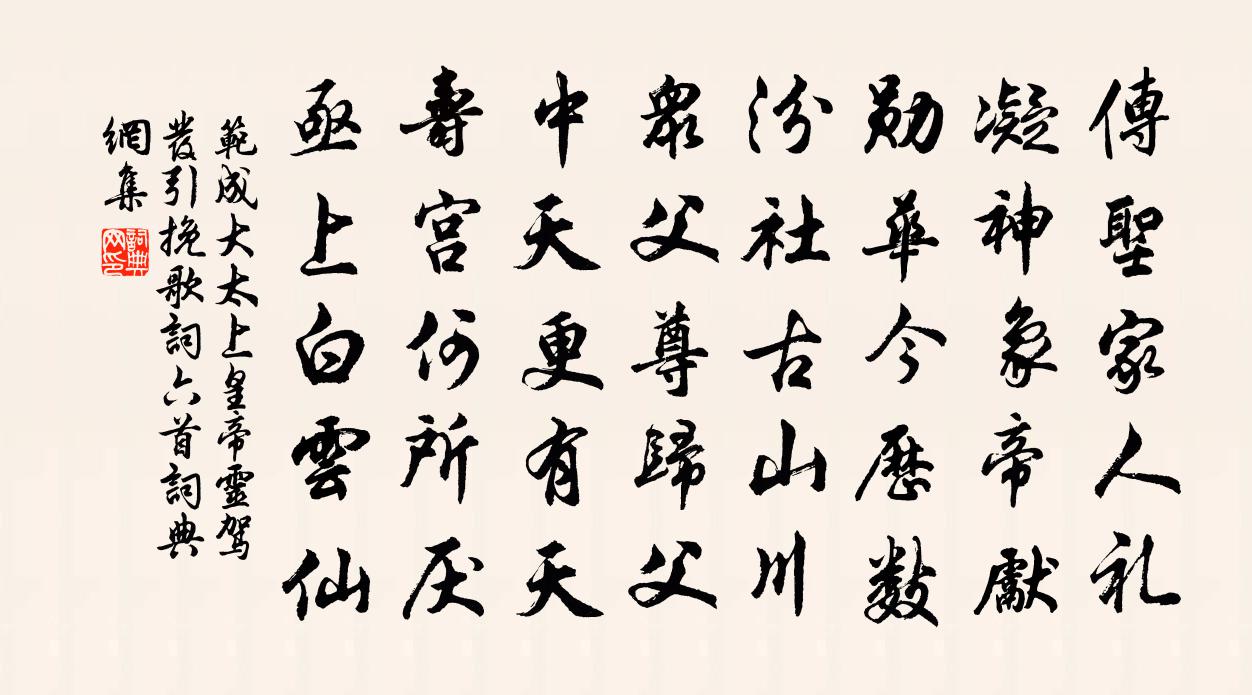 傳聖家人礼
凝神象帝獻
勛華今歷數
汾社古山川
眾父尊歸父
中天更有天
壽宮何所厌
亟上白雲仙
範成大太上皇帝靈駕
發引挽歌詞六首詞典
網集
詞典网印